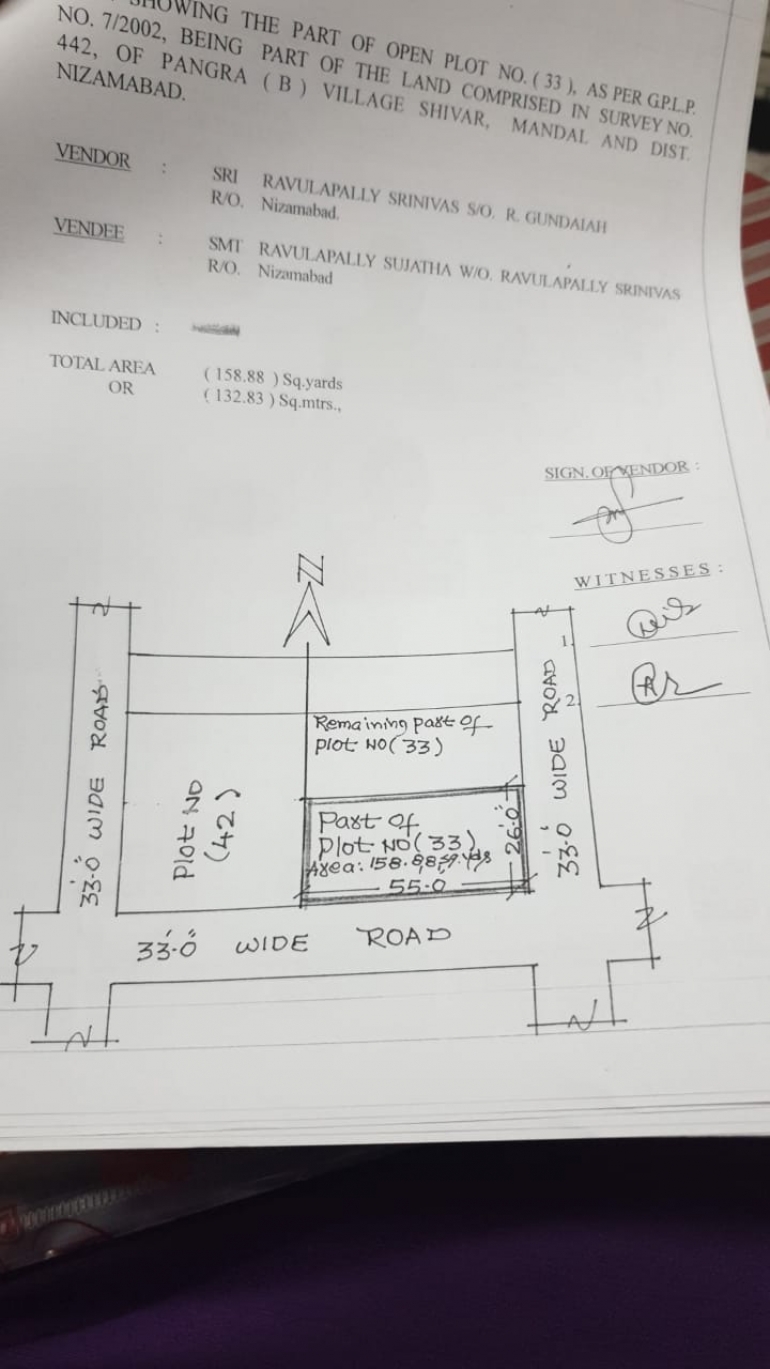 SHOWING THE PART OF OPEN PLOT NO. ( 33 ), AS PER G.P.L.P.
NO. 7/2002, BEING PART OF THE LAND COMPRISED IN SURVEY NO.
442, OF PANGRA ( B ) VILLAGE SHIVAR, MANDAL AND DIST.
NIZAMABAD.
VENDOR : SRI RAVULAPALLY SRINIVAS S/O. R. GUNDAIAH
R/O. Nizamabad.
VENDEE : SMT RAVULAPALLY SUJATHA W/O. RAVULAPALLY SRINIVAS
R/O. Nizamabad
INCLUDED :
TOTAL AREA ( 158.88 ) Sq.yards
OR ( 132.83 ) Sq.mtrs.,
SIGN. OF VENDOR :
WITNESSES :
1.
2.
N
33'-0" WIDE ROAD
Plot NO
(42)
Remaining part of
plot NO(33)
Part of
Plot NO(33)
Area: 158.88 sq.yds
55-0
26'-0"
33'-0" WIDE ROAD
33'-0" WIDE ROAD